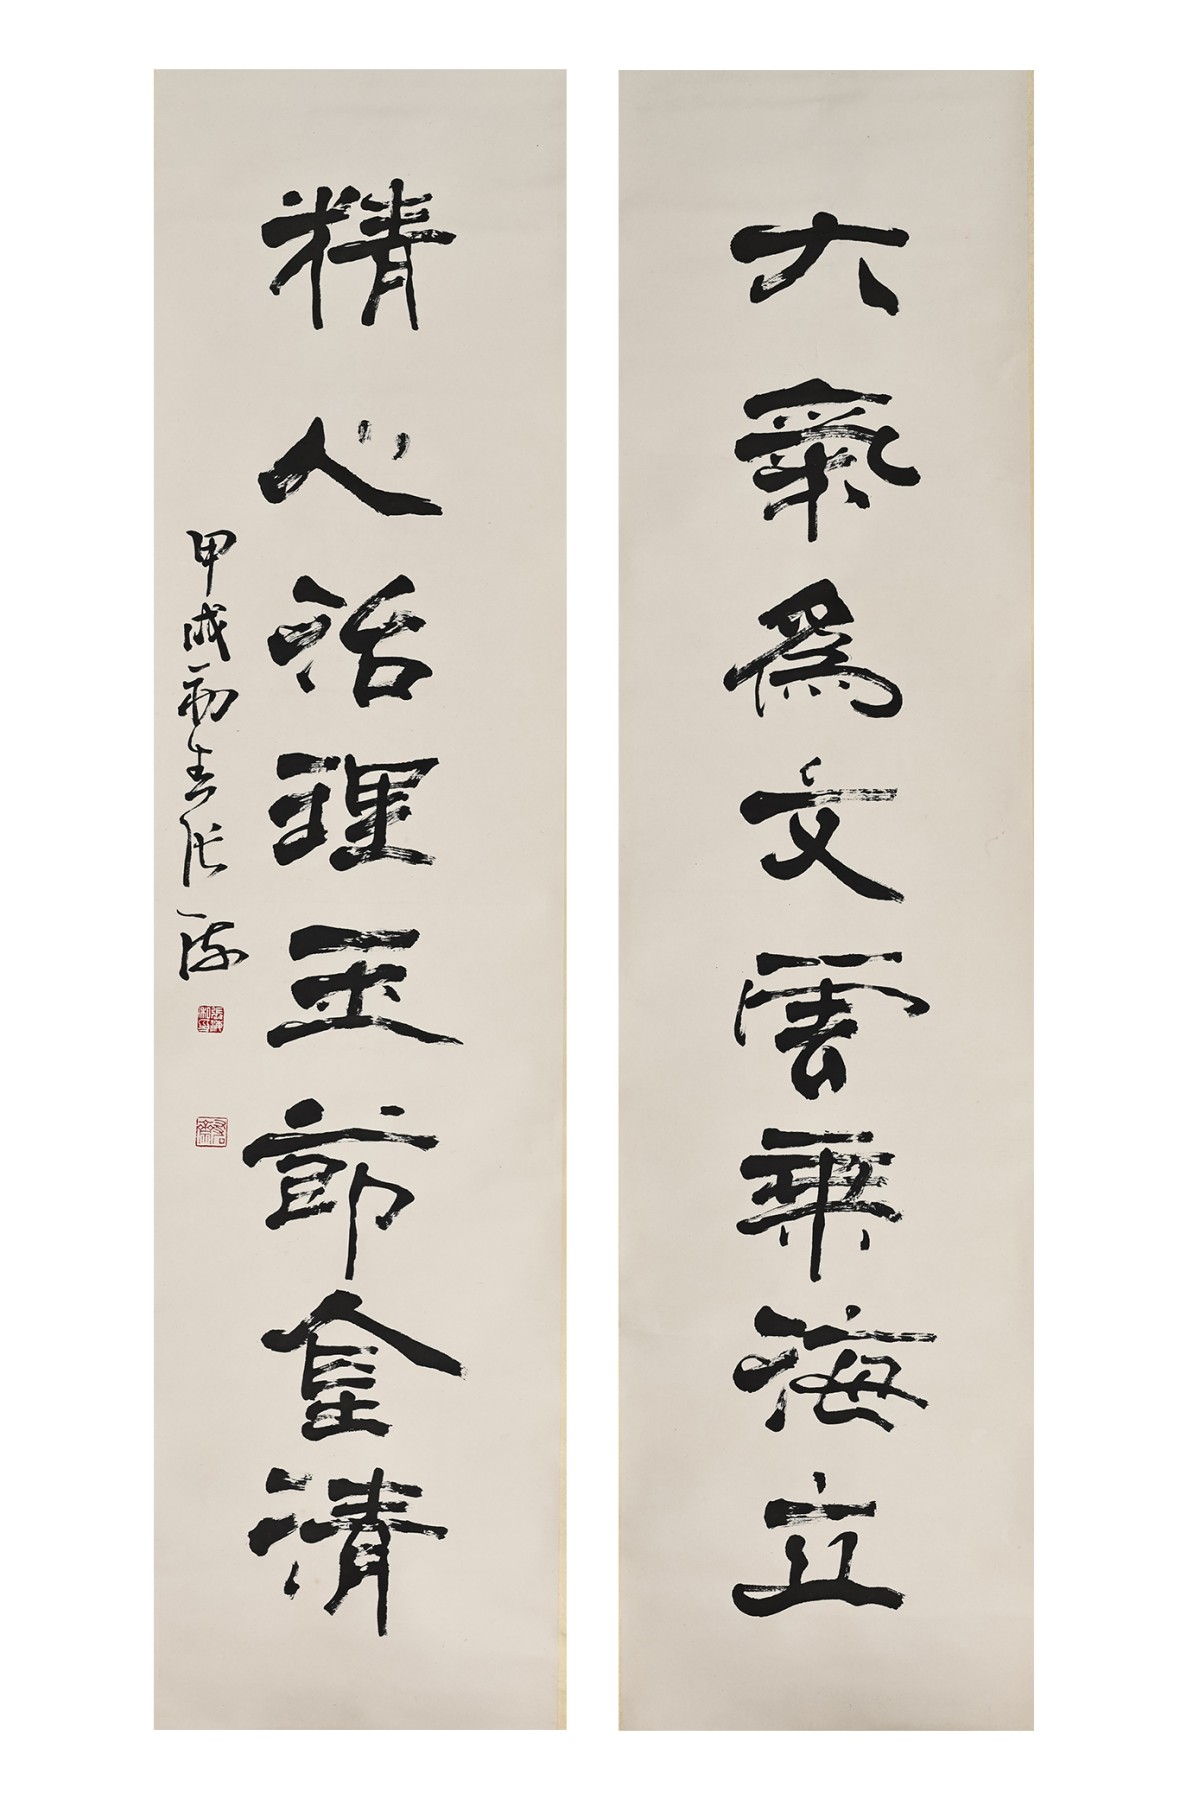 大氣為文雲垂海立
精心治理玉節金清
甲戌初春張海